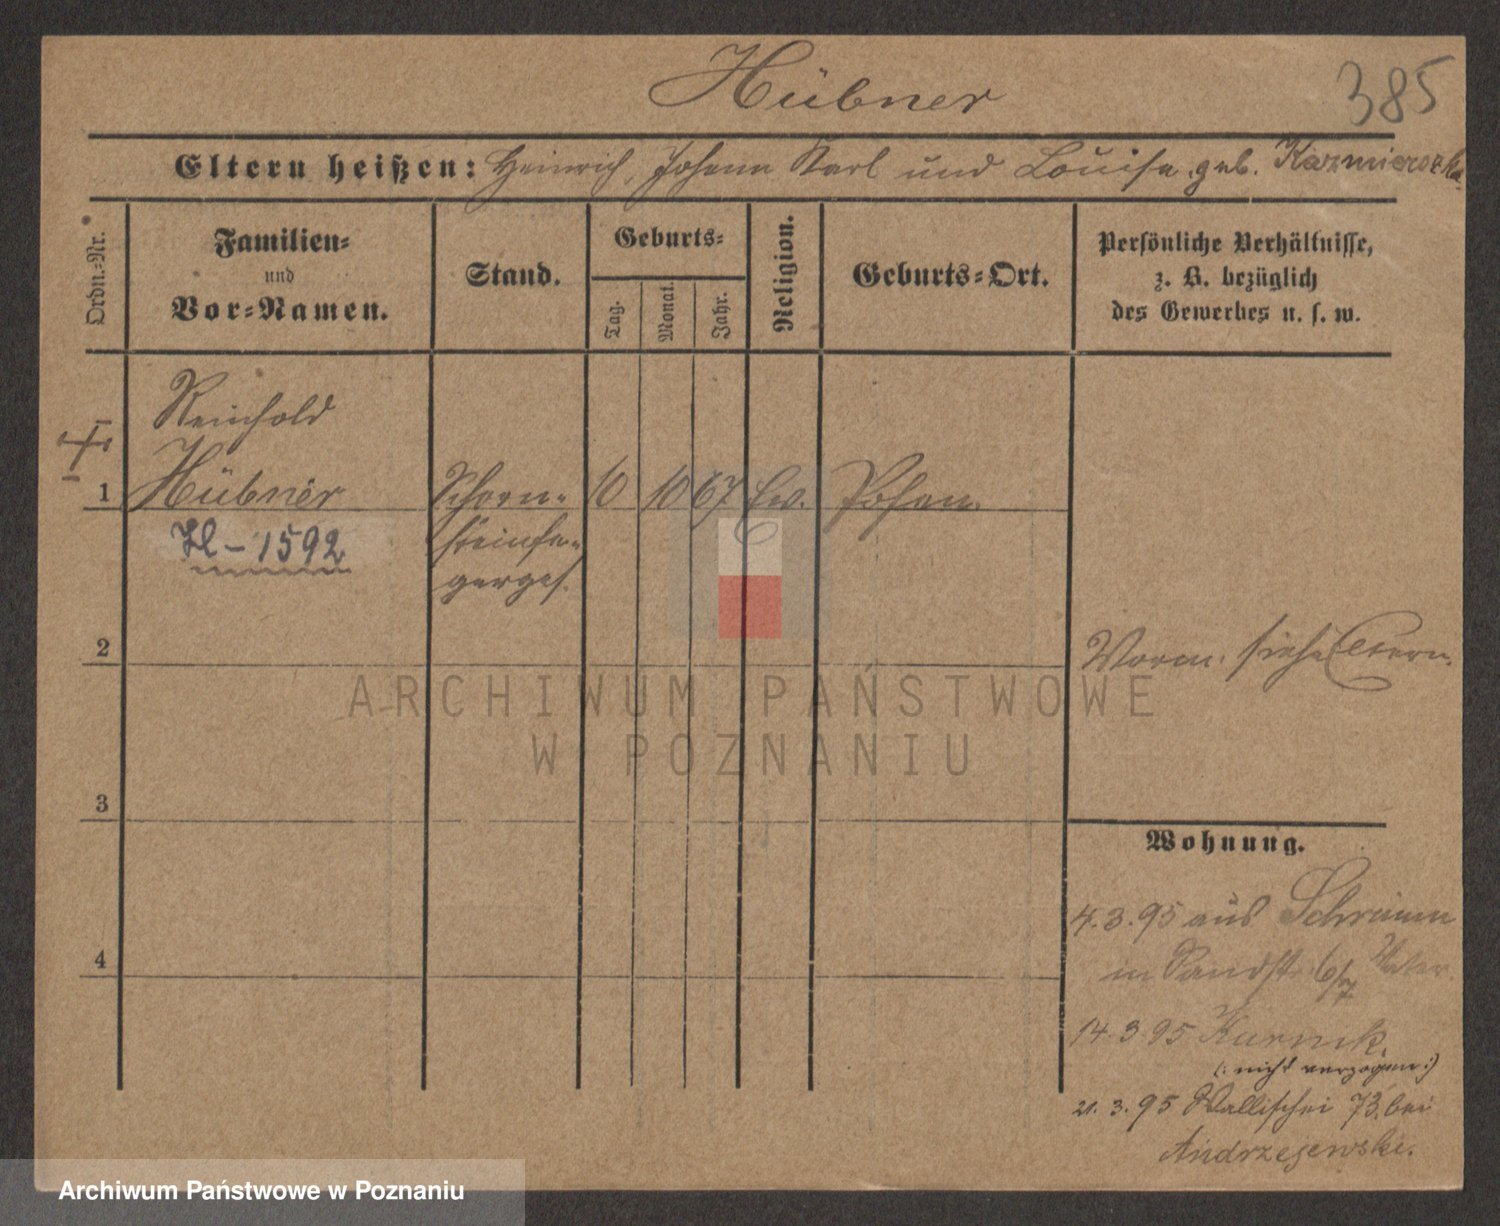 Hübner
385
Eltern heißen: Heinrich, Johann Karl und Louise geb. Kazmierozka
Ordn.-Nr.
Familien-
und
Vor-Namen.
Stand.
Geburts-
Tag.
Monat.
Jahr.
Religion.
Geburts-Ort.
Persönliche Verhältnisse,
z. B. bezüglich
des Gewerbes u. s. w.
Reinhold
1 Hübner Schorn- 10 10 67 Ev. Posen.
steinfe-
gerges.
Hl - 1592
2
Vorm. siehe Eltern.
3
Wohnung.
4. 3. 95 aus Schrimm
in Sandstr 6/7 Vater
4
14. 3 95 Kurnik
(: nicht verzogen :)
21. 3. 95 Wallischei 73, bei
Andrzejewski.
ARCHIWUM PAŃSTWOWE
W POZNANIU
Archiwum Państwowe w Poznaniu